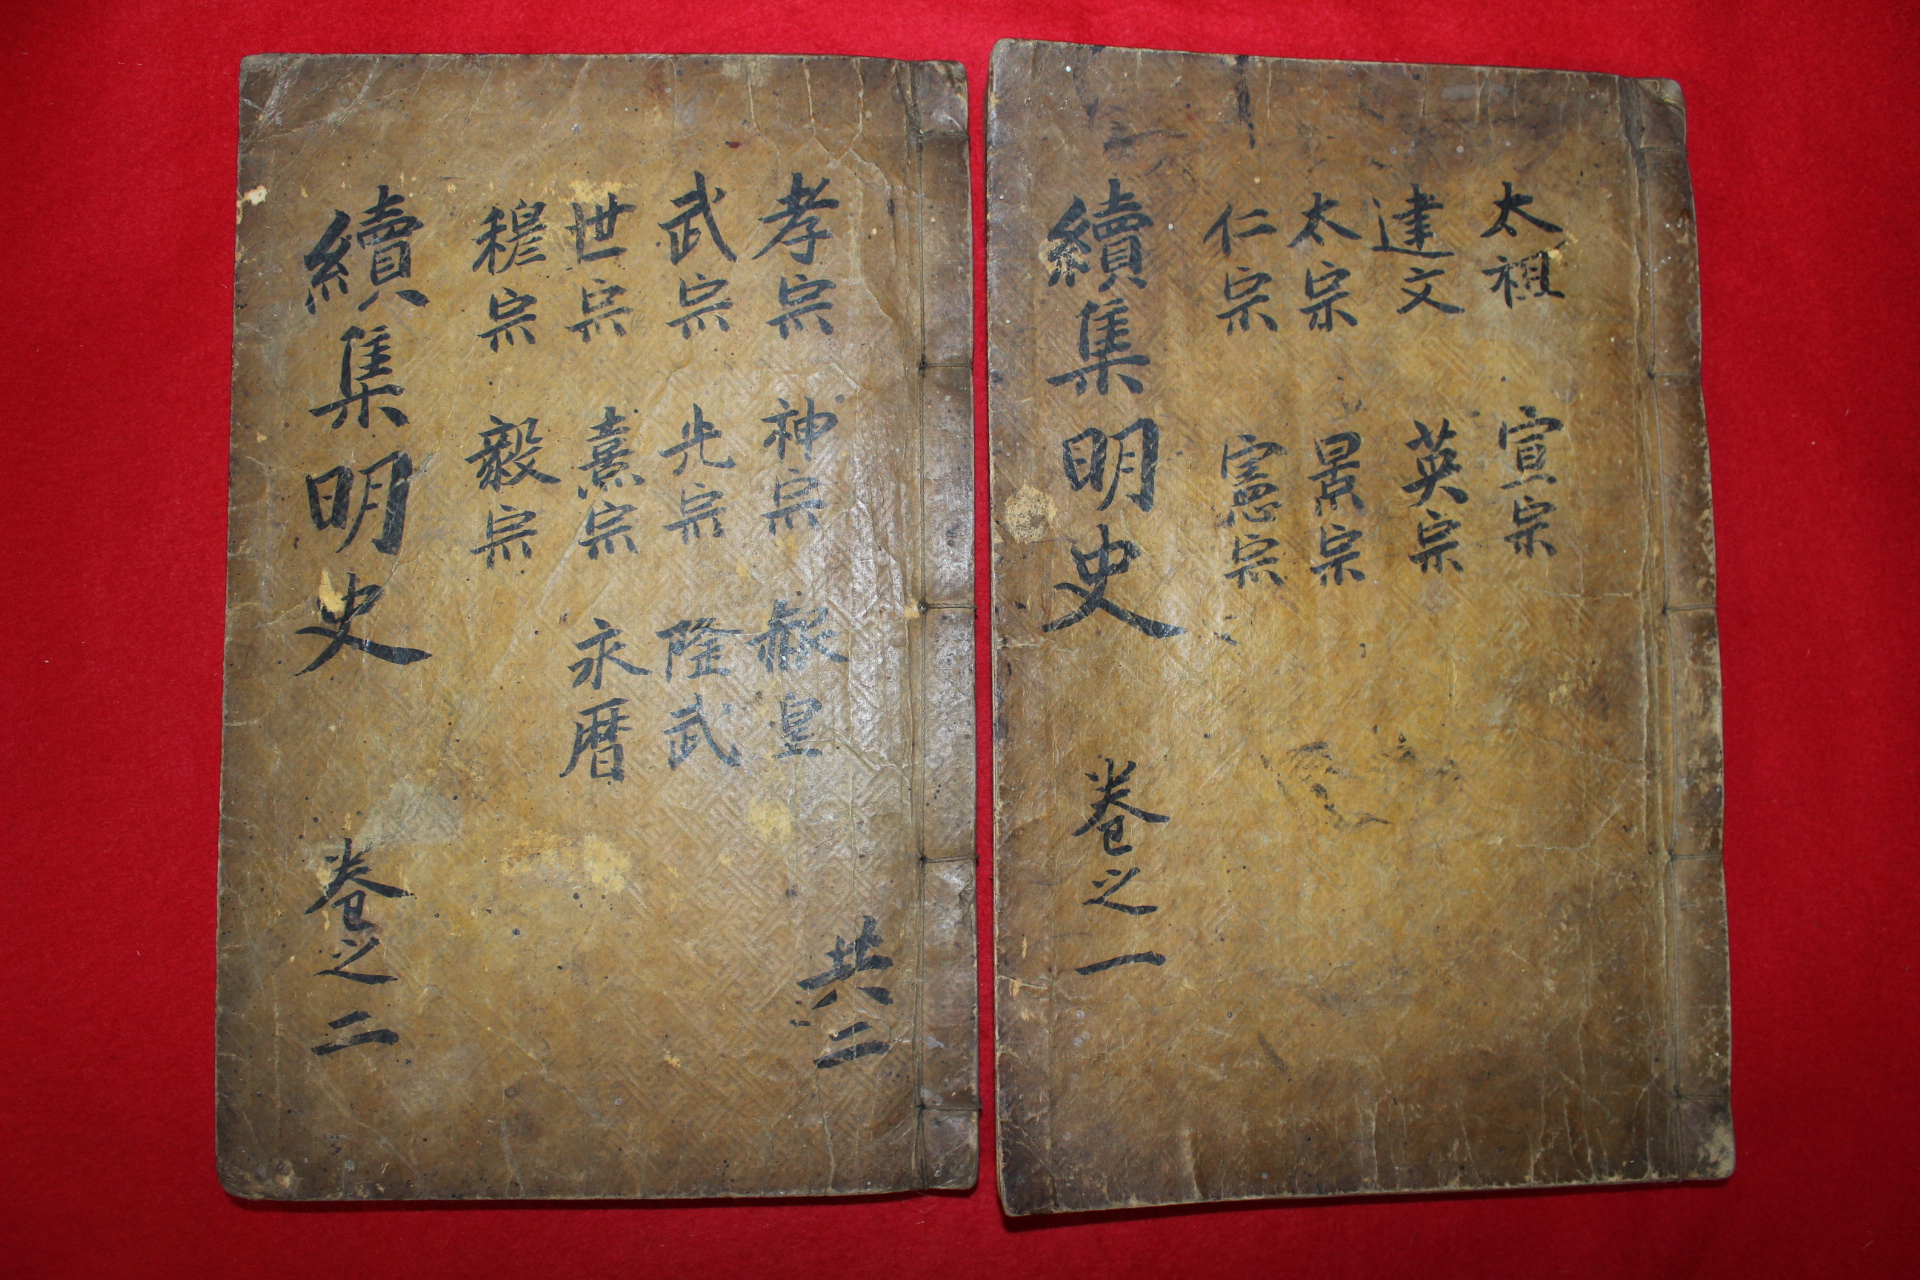 太祖 宣宗
建文 英宗
太宗 景宗
仁宗 憲宗
續集明史 卷之一
共二
孝宗 神宗 赧皇
武宗 光宗 隆武
世宗 熹宗 永暦
穆宗 毅宗
續集明史 卷之二